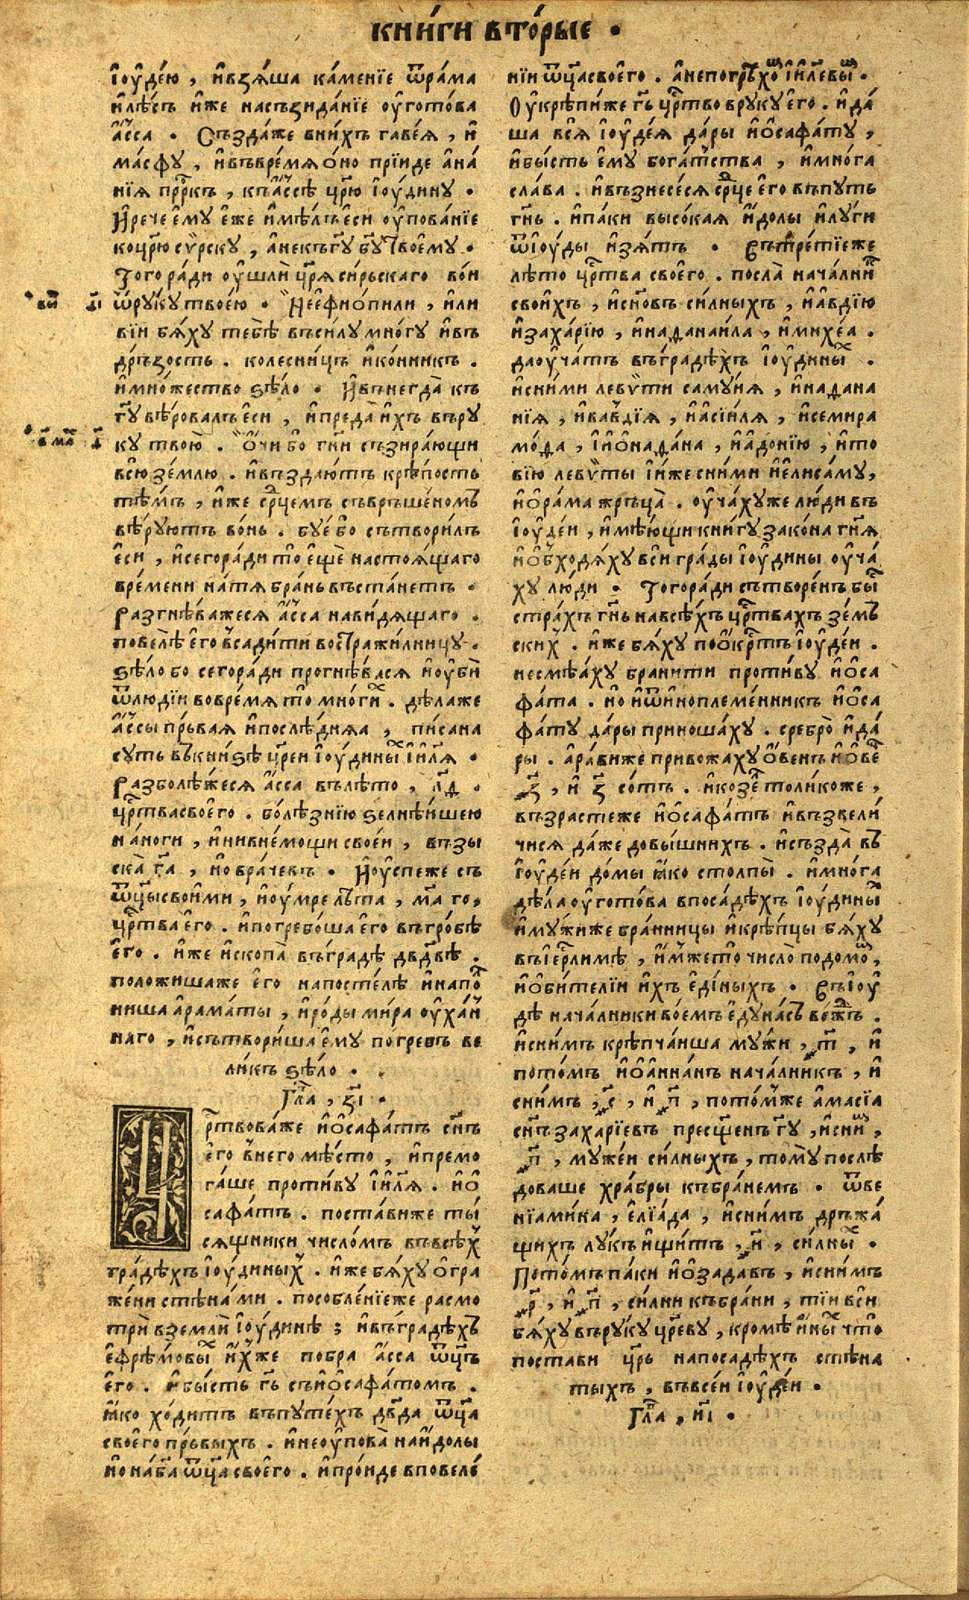 кни́ги вто́рые ·
і҆оу҆де́ю , и҆взѧ́ша ка́менїе ѿра́ма
и҆лѣ́съ и҆же насъзида́нїе оу҆гото́ва
а҆́сса · Създа́же вни́хъ гаве́ѧ , и҆
ма́сфу , и҆въвре́мѧ о́но прїи́де а҆на́
нїѧ прⷪ҇ркъ , къа҆́ссѣ цр҃ю і҆оу҆дину ·
И҆рече є҆му є҆же и҆мѣ́лъ є҆си оу҆пова́нїе
коцр҃ю сѵ́рску , а҆некъ гу҃ бу҃ твоє҆му ·
Того ра́ди оу҆шлѝ цр҃ѧ си́рьскаго во́и
ѿру́ку твоє́ю · Не є҆фио́пили , и҆ли
вїи бѧ́ху тебѣ̀ въси́лу мно́гу и҆въ
дръ́зость . колесни́цъ и҆ко́нникъ .
и҆мно́жество ѕѣ́ло · И҆вънегда̀ къ
гу҃ вѣ́ровалъ є҆си , и҆преда̀ и҆́хъ въру
ку твою̀ . О́чи бо гн҃и съзира́ющи
всю́ зе́млю . и҆въздаю́тъ крѣ́пость
тѣ́мъ , и҆же срⷣцемъ съвръше́номъ
вѣ́руютъ во́нь . бує́ бо сътвори́лъ
є҆си , и҆сего ра́ди то є҆щѐ настоѧ́щаго
вре́мени на́тѧ бра́нь въста́нетъ ·
Разгнѣ́важесѧ а҆́сса нави́дѧщаго .
повелѣ̀ є҆го̀ всади́ти востражи́лницу .
ѕѣ́ло бо сегора́ди прогнѣ́васѧ и҆оу҆бѝ
ѿлюді́и вовре́мѧ то мно́гиⷯ . дѣ́лаже
а҆́ссы пръ́ваѧ и҆послѣ́днѧа , пи́сана
суть въ кни́ѕѣ цр҃еи і҆оу҆диныⷯ і҆и҃лѧ ·
Разболѣ́жесѧ а҆́сса вълѣ́то , л҃д .
црⷭ҇тва своє҆го . болѣ́знїю ѕелнѣ́ишею
на́ноги , и҆ни в не́мощи своєи , възы
ска̀ га҃ , но врачевъ · И҆оу҆спеже съ
ѿц҃ы свои́ми , и҆оу҆мре лѣ́та , м҃а го ,
црⷭ҇тва є҆го . и҆погребо́ша є҆го въгро́бѣ
є҆го . и҆же и҆скопа̀ въгра́дѣ дв҃двѣ .
положи́шаже є҆го напосте́лѣ и҆напоⷧ
ниша а҆рама́ты , и҆ро́ды ми́ра оу҆ха́и
наго , и҆сътвори́ша є҆му погре́въ ве
ли́къ ѕѣ́ло .
Глⷡ҇а , з҃і ·
Црⷭ҇твова́же и҆ѡ҆сафа́тъ сн҃ъ
є҆го̀ в него мѣ́сто , и҆премо
га́ше проти́ву і҆и҃лѧ . и҆ѡ҆
сафа́тъ . поста́виже ты́
сѧщники число́мъ въвсѣⷯ
гра́дѣхъ і҆оу҆диныⷯ . и҆же бѧ́ху о҆гра
же́ни стѣна́ми . пособле́нїеже расмо
трѝ в землѝ і҆оу҆динѣ ; и҆въгра́дѣхъ
є҆фре́мовыⷯ и҆́хже побра а҆́сса ѿц҃ъ
є҆го . и҆бы́сть гь҃ съи҆ѡ҆сафа́томъ .
ꙗ҆́ко хо́дитъ въпуте́хъ дв҃да ѿц҃а
своє҆го пръ́выхъ . и҆неоу҆пова̀ наи҆́долы
но на́ба҃ ѿц҃а своє҆го . и҆про́иде вповеле́
нїи ѿц҃а своє҆го . а҆непогрѣхоⷨ і҆и҃левыⷨ .
Оу҆крѣпи́же гь҃ црⷭ҇тво вруку є҆го . и҆да́
ша всѧ̀ і҆оу҆де́ѧ да́ры и҆ѡ҆сафа́ту ,
и҆бы́сть є҆му бога́тства , и҆мно́га
сла́ва . и҆възнесе́сѧ срⷣце є҆го въпуть
гн҃ь . и҆па́ки высо́каѧ и҆́долы и҆лу́ги
ѿі҆оу҆ды и҆зѧ́тъ · Втретїеже
лѣ́то црⷭ҇тва своє҆го . посла̀ нача́лниⷦ
свои́хъ , и҆сн҃овъ си́лныхъ , и҆а҆вді́ю
и҆заха́рїю , и҆нафанаи́ла , и҆михе́а .
да оу҆ча́тъ въгра́дѣхъ і҆оу҆диныⷯ .
и҆сни́ми левѵ́ти саму́иѧ , и҆нафана
нїѧ , и҆завді́ѧ , и҆а҆сіи́лѧ , и҆семира
мо́фа , і҆ѡ҆нафа́на , и҆а҆до́нїю , и҆то
вїю левѵ́ты и҆́ниже сни́ми и҆є҆лиса́му ,
и҆ѡ҆ра́ма жръца̀ . оу҆ча́хуже лю́ди въ
і҆оу҆де́и , и҆мѣ́ющи кни́гу зако́на гн҃ѧ
и҆о҆бходѧ́ху вси гра́ды і҆оу҆дины оу҆ча́
ху лю́ди · Того ра́ди сътворе́нъ быⷭ
стра́хъ гн҃ь навсѣ́хъ црⷭ҇твахъ зе́мъ
скиⷯ . и҆же бѧ́ху поо҆́крⷭтъ і҆оу҆де́и .
несмѣ́ѧху брани́ти проти́ву и҆ѡ҆са
фа́та . но и҆ѿи҆ноплеме́нникъ и҆ѡ҆са
фа́ту да́ры приноша́ху . сребро̀ и҆да́
ры . а҆ра́виже привожа́ху о҆́венъ и҆о҆веⷩ
҂з҃ , и҆ з҃ со́тъ . и҆козеⷧ толи́коже ,
възрасте́же и҆ѡ҆сафа́тъ и҆възвели́
чисѧ да́же довы́шнихъ . и҆създа̀ въ
і҆оу҆де́и до́мы ꙗ҆́ко столпы̀ . и҆мно́га
дѣ́ла оу҆гото́ва впоса́дѣхъ і҆оу҆диныⷯ
и҆му́жиже бра́нницы и҆крѣ́пцы бѧ́ху
въі҆ерⷭлимѣ , и҆мже то число̀ подомоⷨ ,
и҆о҆би́телїи и҆́хъ є҆ди́ныхъ · Въі҆оу҆
дѣ нача́лники во́емъ є҆ду́насъ вежⷣь .
и҆сни́мъ крѣпча́иша му́жи ҂т҃ , и҆
пото́мъ и҆ѡ҆анна́нъ нача́лникъ , и҆
сни́мъ ҂с҃ , и҆ ҂п҃ , пото́мже а҆масі́а
сн҃ъ заха́рїевъ пресщ҃енъ гу҃ , и҆сниⷨ ,
҂п҃ , муже́и си́лныхъ , то́му послѣ́
доваше хра́бры къбра́немъ · ѿ ве
нїами́на , є҆лїа́да , и҆сни́мъ дръжа́
щихъ лу́къ и҆щи́тъ ҂и҃ , си́лныⷯ .
Пото́мъ па́ки и҆ѡ҆задавъ , и҆сни́мъ
҂р҃ , и҆ ҂п҃ , си́лни къбра́ни , ті́и вси
бѧ́ху въру́ку цр҃еву , кромѣ́ и҆ныⷯ что
поста́ви цр҃ь напоса́дѣхъ стѣна
тыхъ , въвсе́и і҆оу҆де́и .
Глⷡ҇а , и҃і ·